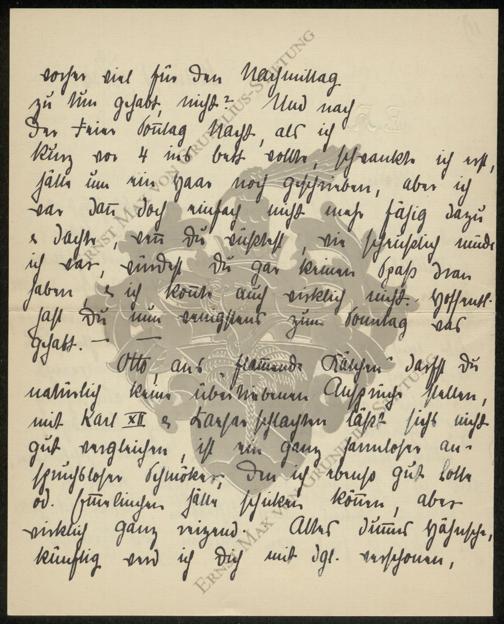 vorher viel für den Nachmittag
zu tun gehabt, nicht? Und nach
der Feier Sonntag Nacht, als ich
kurz vor 4 ins Bett wollte, schwankte ich erst,
hätte um ein Haar noch geschrieben, aber ich
war dann doch einfach nicht mehr fähig dazu
& dachte, wenn Du wüsstest, wie scheusslich müde
ich war, würdest Du gar keinen Spass dran
haben, & ich konte auch wirklich nicht. Hoffentl.
hast Du nun wenigstens zum Sonntag was
gehabt. —
Otto, ans „flammende Kätchen" darfst Du
natürlich keine übertriebenen Ansprüche stellen,
mit Karl XII & Kaiserschlachten läßt sichs nicht
gut vergleichen, ist ein ganz harmloser an-
spruchsloser Schmöker, den ich ebenso gut Lotte
od. hätte schicken können, aber
wirklich ganz reizend. Altes dummes Hähnche,
künftig werd ich Dich mit dgl. verschonen,
ERNST MAX VON GRUNELIUS-STIFTUNG
ERNST MAX VON GRUNELIUS-STIFTUNG